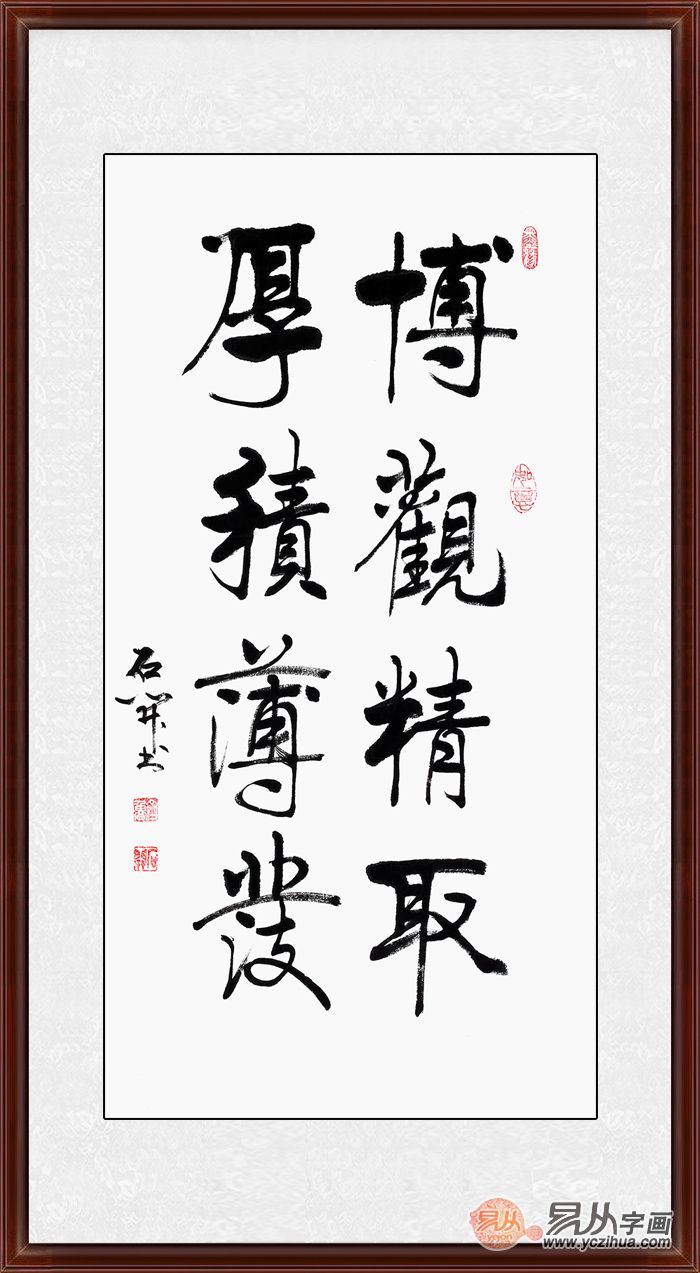 博觀精取
厚積薄發
石開书
易从字画
www.yczihua.com